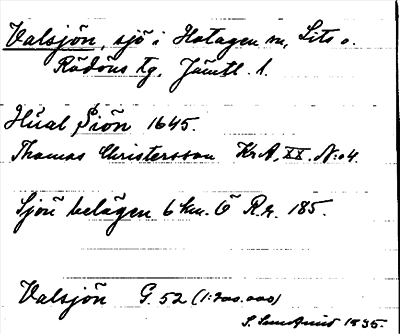 Valsjön, sjö i Hotagen sn, Lits o.
Rödöns tg, Jämtl. l.
Hüal Siön 1645.
Thomas Christersson KrA, XX. N:o 4.
Sjön belägen 6 km. Ö R.r. 185.
Valsjön G. 52 (1:200.000)
1935.